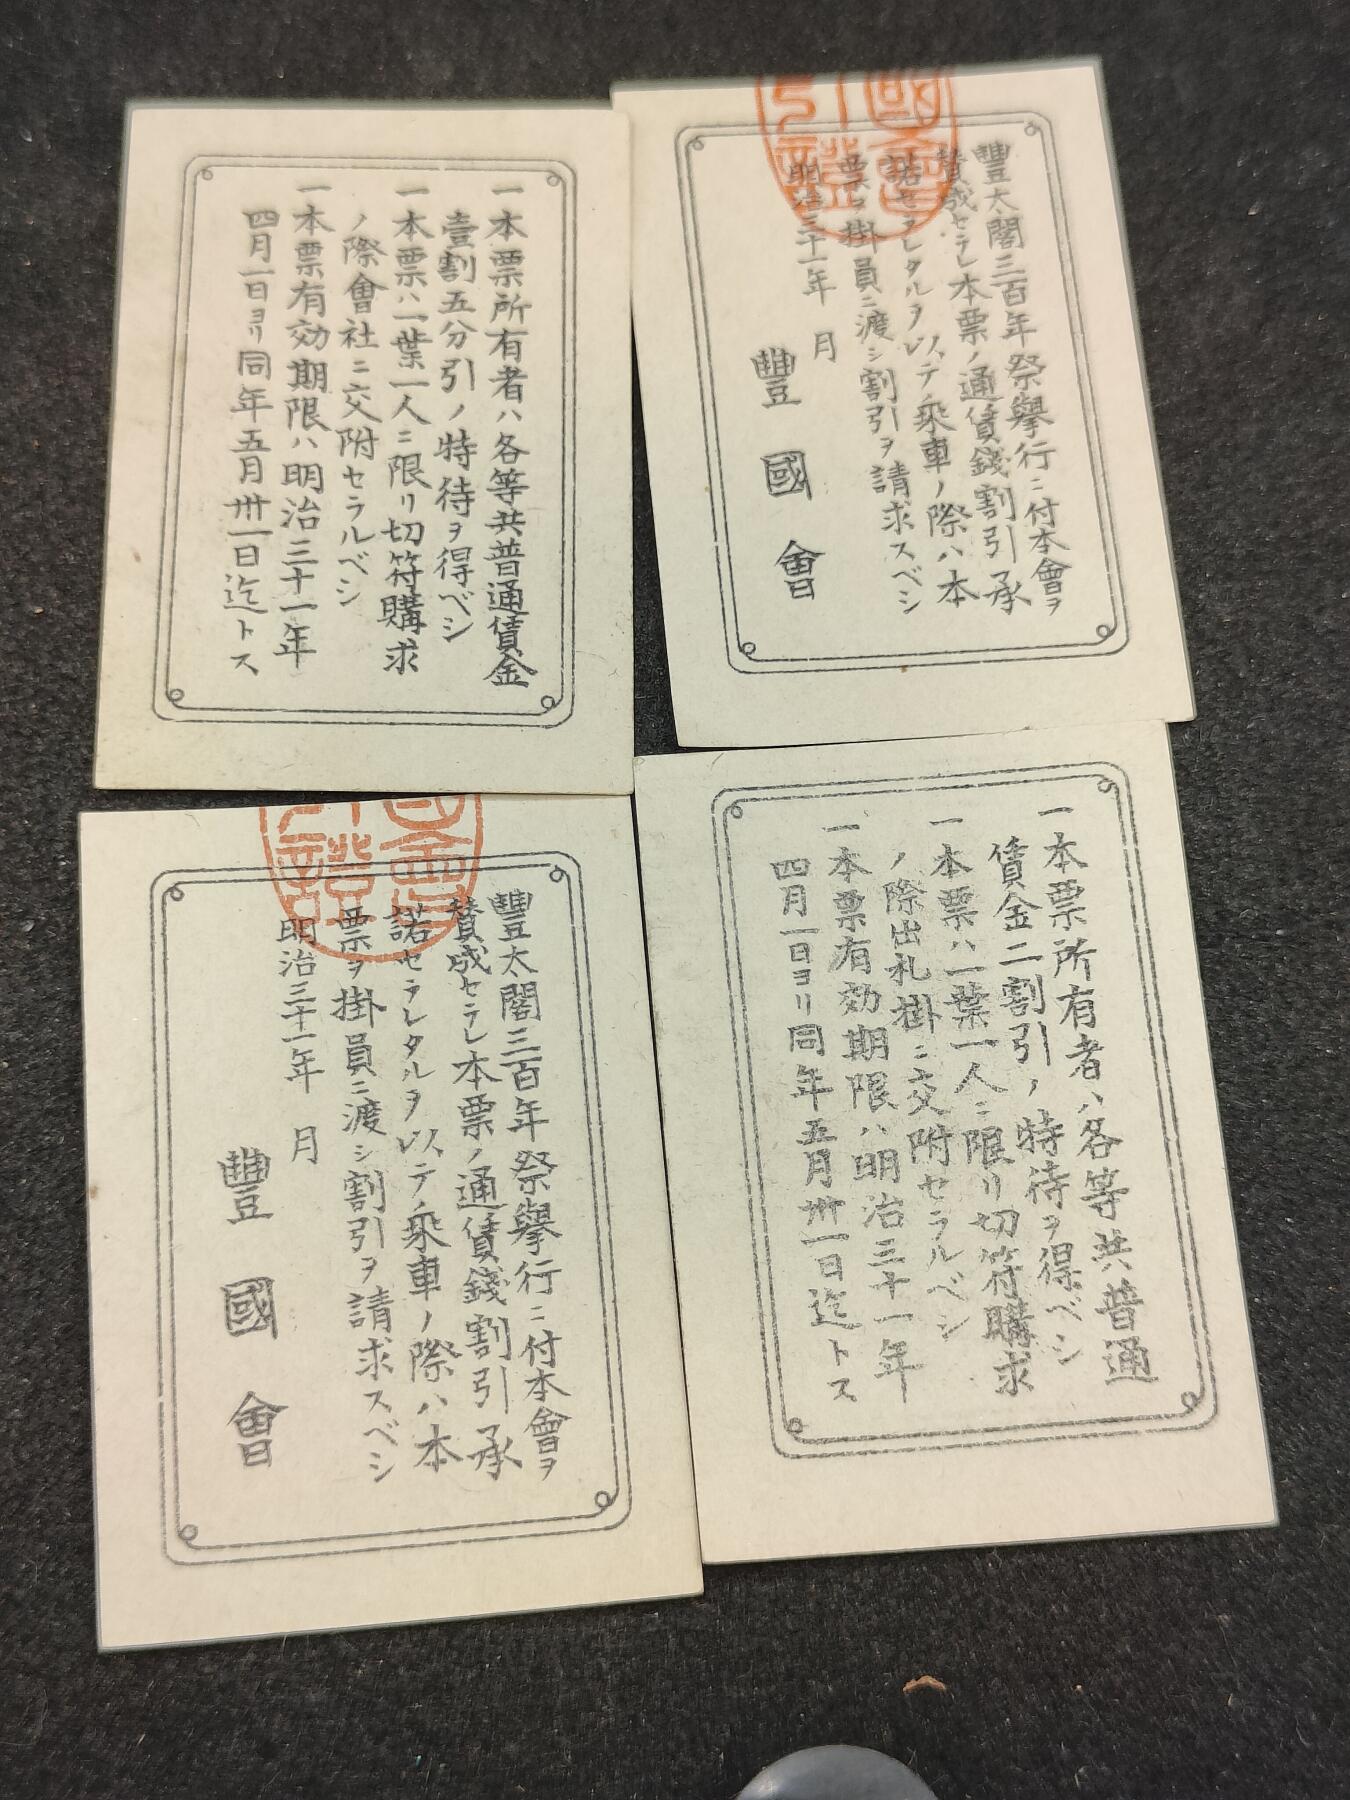 一本票所有者ハ各等共普通賃金
壹割五分引ノ特待ヲ得ベシ
一本票ハ一葉一人ニ限リ切符購求
ノ際會社ニ交附セラルベシ
一本票有効期限ハ明治三十一年
四月一日ヨリ同年五月卅一日迄トス
豐太閤三百年祭擧行ニ付本會ヲ
賛成セラレ本票ノ通賃錢割引承
諾セラレタルヲ以テ乘車ノ際ハ本
票ヲ掛員ニ渡シ割引ヲ請求スベシ
明治三十一年 月
豐國會
豐太閤三百年祭擧行ニ付本會ヲ
賛成セラレ本票ノ通賃錢割引承
諾セラレタルヲ以テ乘車ノ際ハ本
票ヲ掛員ニ渡シ割引ヲ請求スベシ
明治三十一年 月
豐國會
一本票所有者ハ各等共普通
賃金二割引ノ特待ヲ得ベシ
一本票ハ一葉一人ニ限リ切符購求
ノ際出札掛ニ交附セラルベシ
一本票有効期限ハ明治三十一年
四月一日ヨリ同年五月卅一日迄トス